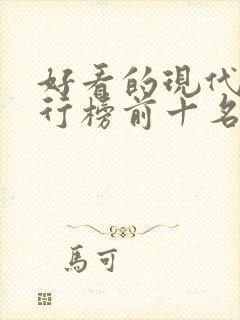 好看的現代
行榜前十名
馬可